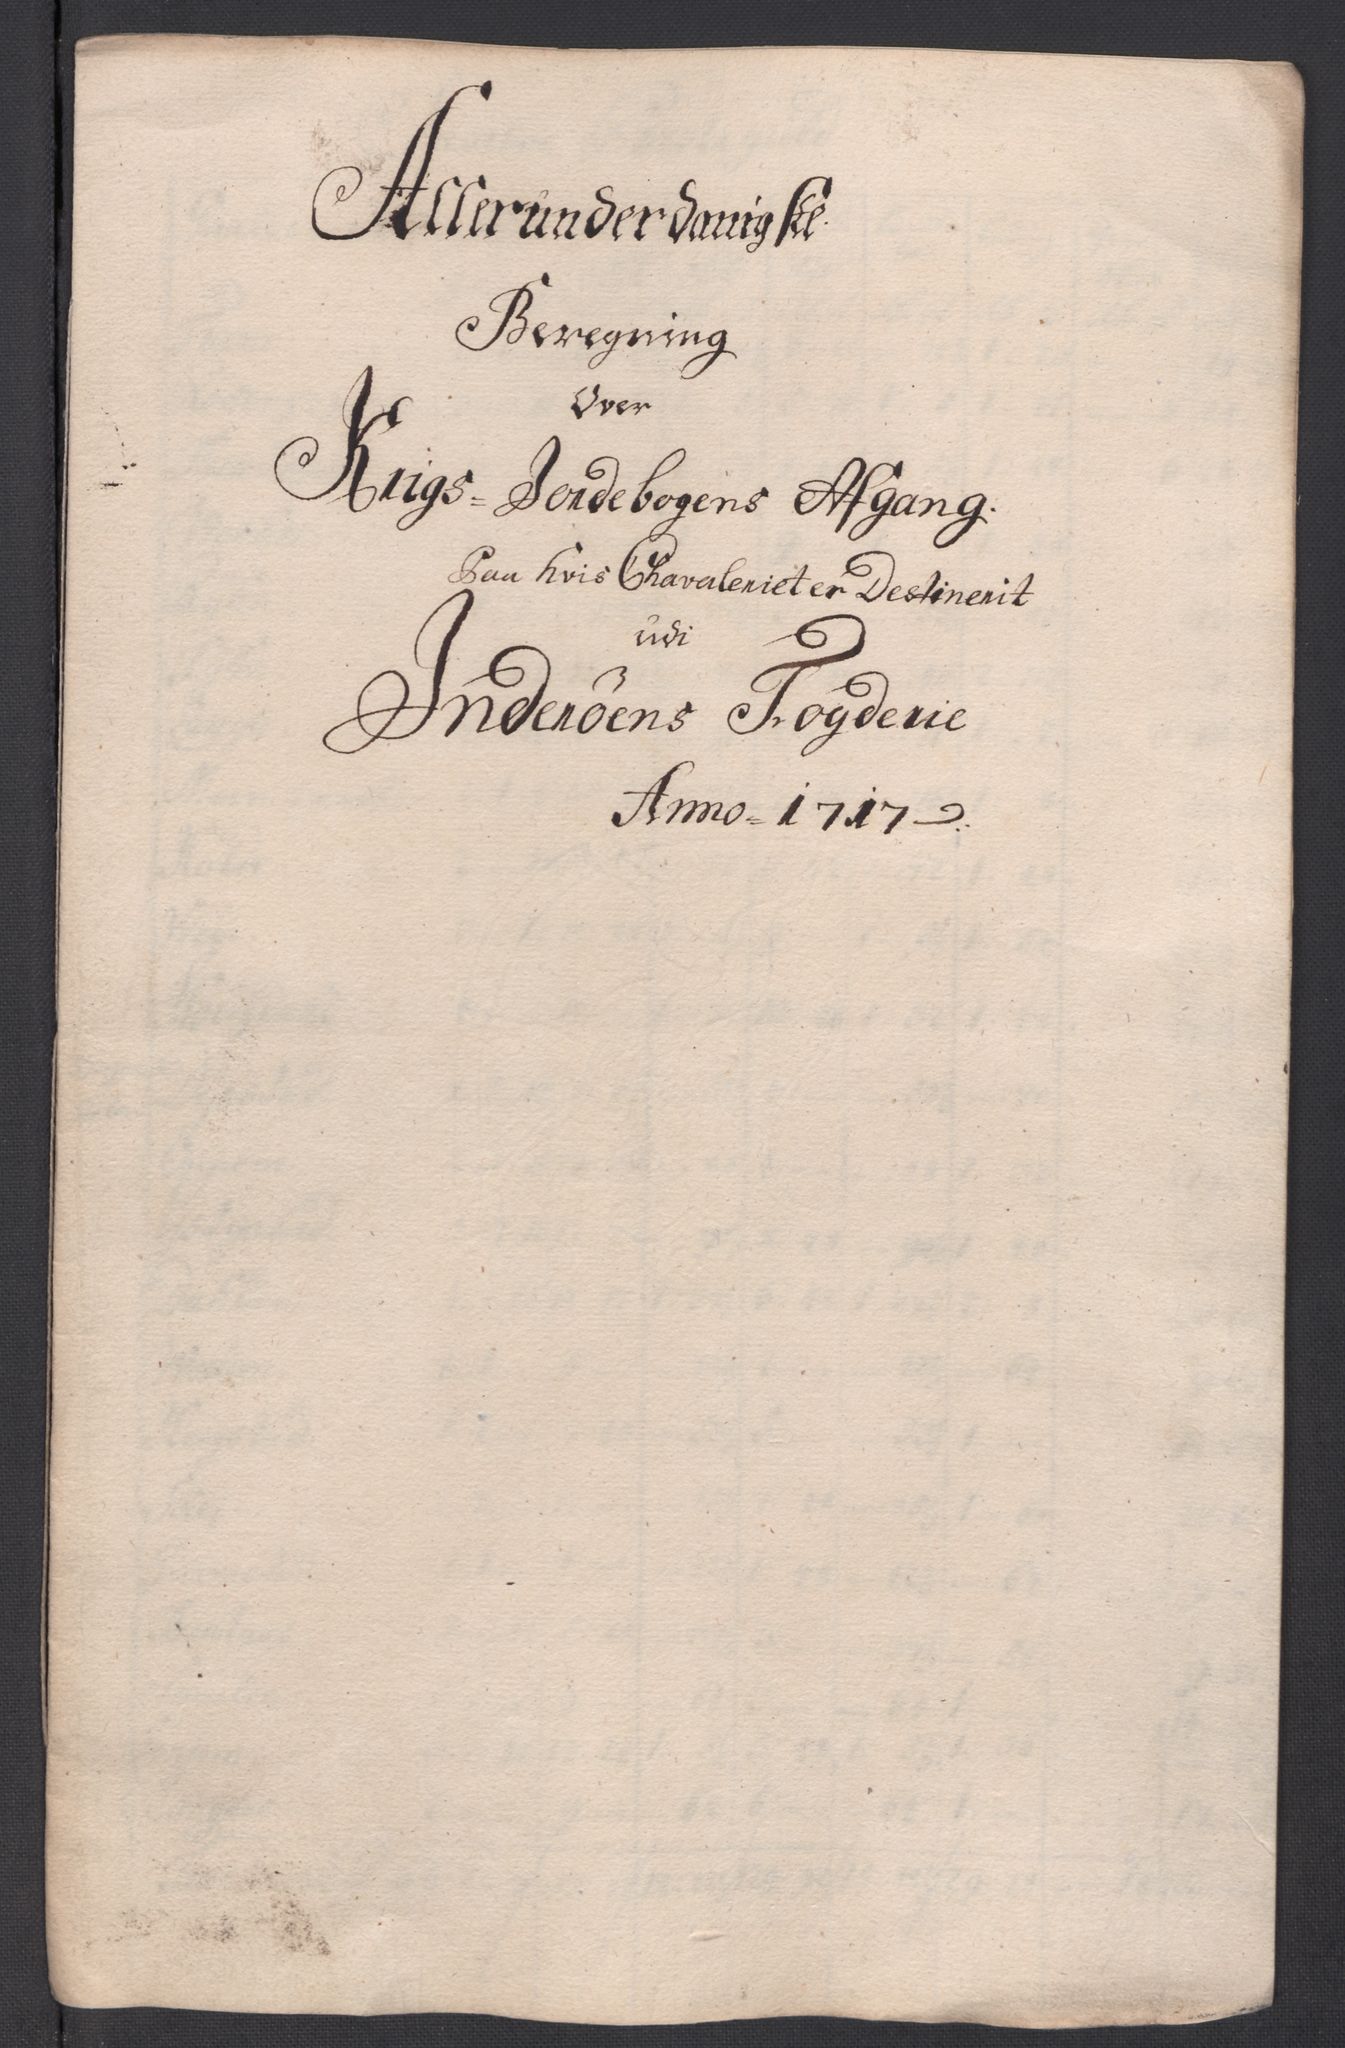 Allerunderdanigste
Beregning
Over
Krigs= Jordebogens Afgang.
Paa hvis Chavaleriet er Destinerit
udi
Inderöens Fogderie
Anno= 1717